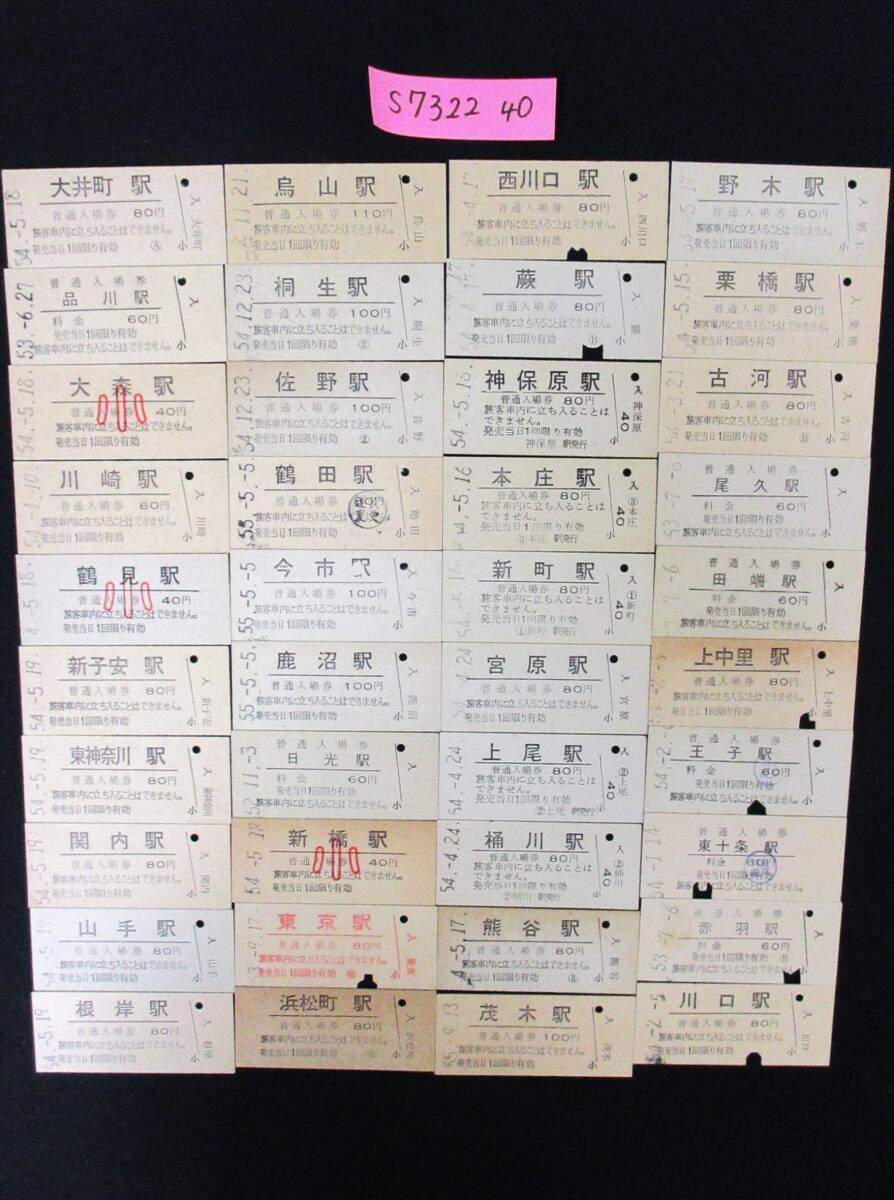 S7322 40
大井町 駅
普通入場券 80円
旅客車内に立ち入ることはできません。
発売当日1回限り有効
54.-5.18
入 大井町
小
烏山駅
普通入場券 110円
旅客車内に立ち入ることはできません。
発売当日1回限り有効
入 烏山
小
西川口 駅
普通入場券 80円
旅客車内に立ち入ることはできません。
発売当日1回限り有効
入 西川口
小
野木駅
普通入場券 80円
旅客車内に立ち入ることはできません。
発売当日1回限り有効
小
普通入場券
品川駅
料金 60円
発売当日1回限り有効
旅客車内に立ち入ることはできません。
53.-6.27
入
小
桐生駅
普通入場券 100円
旅客車内に立ち入ることはできません。
発売当日1回限り有効 ②
54.12.23
入 桐生
小
蕨 駅
普通入場券 80円
旅客車内に立ち入ることはできません。
発売当日1回限り有効
入 蕨
小
栗橋駅
普通入場券 80円
旅客車内に立ち入ることはできません。
発売当日1回限り有効
入 栗橋
小
大森駅
普通入場券 40円
旅客車内に立ち入ることはできません。
発売当日1回限り有効
小
54.-5.18
佐野駅
普通入場券 100円
旅客車内に立ち入ることはできません。
発売当日1回限り有効 ②
54.12.23
入 佐野
小
神保原駅
普通入場券 80円
旅客車内に立ち入ることは
できません。
発売当日1回限り有効
神保原 駅発行
54.-5.16
入 神保原
40
古河駅
普通入場券 80円
旅客車内に立ち入ることはできません。
発売当日1回限り有効
54.-3.21
入 古河
小
川崎駅
普通入場券 60円
旅客車内に立ち入ることはできません。
発売当日1回限り有効
入 川崎
小
鶴田駅
普通入場券 80円
変更
旅客車内に立ち入ることはできません。
発売当日1回限り有効
55.-5.-5
入 鶴田
小
本庄駅
普通入場券 80円
旅客車内に立ち入ることは
できません。
発売当日1回限り有効
③本庄 駅発行
入 ③本庄
40
普通入場券
尾久駅
料金 60円
発売当日1回限り有効
旅客車内に立ち入ることはできません。
入
小
鶴見駅
普通入場券 40円
旅客車内に立ち入ることはできません。
発売当日1回限り有効
小
今市駅
普通入場券 100円
旅客車内に立ち入ることはできません。
発売当日1回限り有効
55.-5.-5
入 今市
小
新町駅
普通入場券 80円
旅客車内に立ち入ることは
できません。
発売当日1回限り有効
①新町 駅発行
入 ①新町
40
普通入場券
田端駅
料金 60円
発売当日1回限り有効
旅客車内に立ち入ることはできません。
入
小
新子安 駅
普通入場券 80円
旅客車内に立ち入ることはできません。
発売当日1回限り有効
54.-5.19
入 新子安
小
鹿沼駅
普通入場券 100円
旅客車内に立ち入ることはできません。
発売当日1回限り有効
55.-5.-5
入 鹿沼
小
宮原駅
普通入場券 80円
旅客車内に立ち入ることはできません。
発売当日1回限り有効
54.-4.24
入 宮原
小
上中里 駅
普通入場券 80円
旅客車内に立ち入ることはできません。
発売当日1回限り有効
入 上中里
小
東神奈川 駅
普通入場券 80円
旅客車内に立ち入ることはできません。
発売当日1回限り有効
54.-5.19
入 東神奈川
小
普通入場券
日光駅
料金 60円
発売当日1回限り有効
旅客車内に立ち入ることはできません。
52.11.-3
入
小
上尾駅
普通入場券 80円
旅客車内に立ち入ることは
できません。
発売当日1回限り有効
②上尾 駅発行
54.-4.24
入 ②上尾
40
普通入場券
王子駅
料金 60円
発売当日1回限り有効
旅客車内に立ち入ることはできません。
入
小
関内駅
普通入場券 80円
旅客車内に立ち入ることはできません。
発売当日1回限り有効
54.-5.19
入 関内
小
新橋駅
普通入場券 40円
旅客車内に立ち入ることはできません。
発売当日1回限り有効
54.-5.18
小
桶川駅
普通入場券 80円
旅客車内に立ち入ることは
できません。
発売当日1回限り有効
②桶川 駅発行
54.-4.24
入 ②桶川
40
普通入場券
東十条 駅
料金 60円
発売当日1回限り有効
旅客車内に立ち入ることはできません。
54.-1.14
入
小
山手駅
普通入場券 80円
旅客車内に立ち入ることはできません。
発売当日1回限り有効
54.-5.19
入 山手
小
東京駅
普通入場券 80円
旅客車内に立ち入ることはできません。
発売当日1回限り有効
入 東京
小
熊谷駅
普通入場券 80円
旅客車内に立ち入ることはできません。
発売当日1回限り有効
入 熊谷
小
普通入場券
赤羽駅
料金 60円
発売当日1回限り有効
旅客車内に立ち入ることはできません。
53.-7.-6
入
小
根岸駅
普通入場券 80円
旅客車内に立ち入ることはできません。
発売当日1回限り有効
54.-5.19
入 根岸
小
浜松町 駅
普通入場券 80円
旅客車内に立ち入ることはできません。
発売当日1回限り有効
入 浜松町
小
茂木駅
普通入場券 100円
旅客車内に立ち入ることはできません。
発売当日1回限り有効
入 茂木
小
川口駅
普通入場券 80円
旅客車内に立ち入ることはできません。
発売当日1回限り有効
入 川口
小